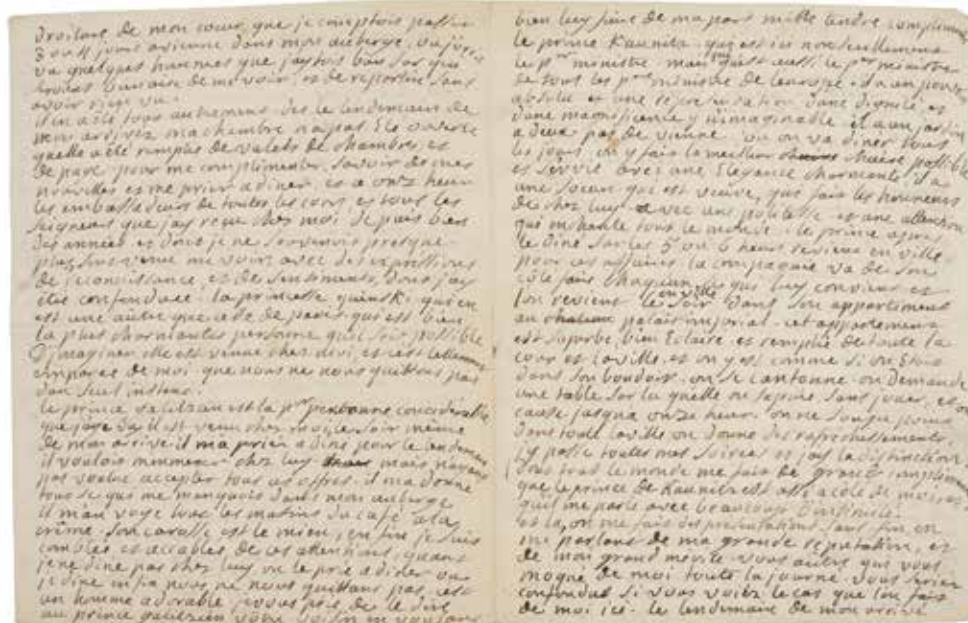 droiture de mon cœur, que je comptois passer
3 ou 4 jours a vienne dans mon auberge, ou j'ores
vu quelques hommes que j'ay tois bien sur qui
seroient bien aise de me voir, et de repartir sans
avoir rien vu.
il en a ete tout autrement. des le lendemain de
mon arrivez ma chambre na pas Ete ouverte
quelle a été remplie de valets de chambres, et
de page pour me complimenter, savoir de mes
nouvelles et me prier a diner, et a onze heur
les embassadeurs de toutes les cours et tous les
seigneurs que jay recue chez moi de puis bien
des années et dont je ne souvenois presque
plus sont venue me voir avec des expressions
de reconoissance, et de sentiments, dont j'ay
été confondue. la princesse quinski, qui en
est une autre que celle de paris, qui est bien
la plus charmantes personne quil soit possible
d'imaginer elle est venue chez moi, et cest tellement
emparée de moi que nous ne nous quittons pas
dun seul instens.
le prince galitzin est la p^re personne considerable
que jaye vu il est venu chez moi le soir meme
de mon arrivé il ma prier a dine pour le lendemain
il voulois m'emmener chez luy mais nayant
pas voulue accepter tous ces offres, il ma donne
tous se qui me manquois dans mon auberge
il m'an voye tous les matins du café a la
crème. son carosse est le mien, enfin je suis
comblée et accablée de ces attentions, quand
je ne dine pas chez luy, on le prie a diner ou
je dine enfin nous ne nous quittons pas, cest
un homme adorable je vous prie de le dire
au prince galitzin votre voisin en voulant
bien luy faire de ma part mille tendre compliment
le prince Kaunitz qui est ici non seullement
le p^er ministre mais qui est aussi le p^er ministre
de tous les p^ers ministre de leurope. d'un pouvoir
absolu et une representation dune dignité et
dune magnificence, inimaginable il a un jardin
a deux pas de vienne ou on va diner tous
les jours, on y fais la meilleur chaire possible
et servie avec une Elegance charmante il a
une sœur qui est vieuve, qui fais les honneurs
de chez luy avec une politesse et une attention
qui enchante tout le monde. le prince apres
le diné sur les 5 ou 6 heurs revient en ville
pour ces affaires. la compagnie va de son
côté fais chaquun ce qui luy convient et
lon revient en ville le soir dans son appartement
au palais imperial. cet appartement
est superbe, bien Eclaire, et remplie de toute la
cour et la ville, et on y est comme si on Etois
dans son boudoir. on se cantonne on Demande
une table sur la quelle on sapuie sans jouer, et on
cause jusqua onze heur. on ne soupe point
dans toute la ville on donne des rafrechissements.
jy passe toutes mes soirées et jay la distinction
dont tout le monde me fais de grands compliments
que le prince de Kaunitz est assi a côté de moi et
quil me parle avec beaucoup
et la, on me fais des présentations sans fin en
me parlant de ma grande réputation, et
de mon grand mérite vous autre qui vous
moqué de moi toute la journé. vous seriez
confondus si vous voiez le cas que lon fais
de moi ici. le lendemain de mon arrivé